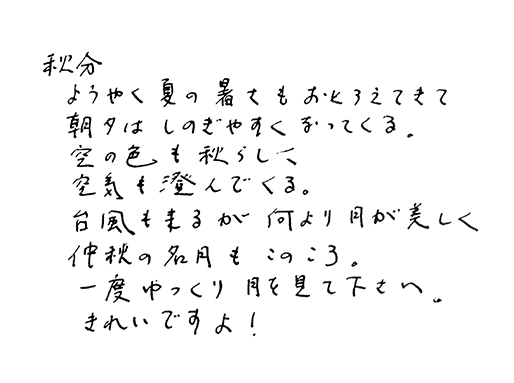 秋分
ようやく夏の暑さもおとろえてきて
朝夕はしのぎやすくなってくる。
空の色も秋らしく
空気も澄んでくる。
台風も来るが何より月が美しく
仲秋の名月もこのころ。
一度ゆっくり月を見て下さい。
きれいですよ!